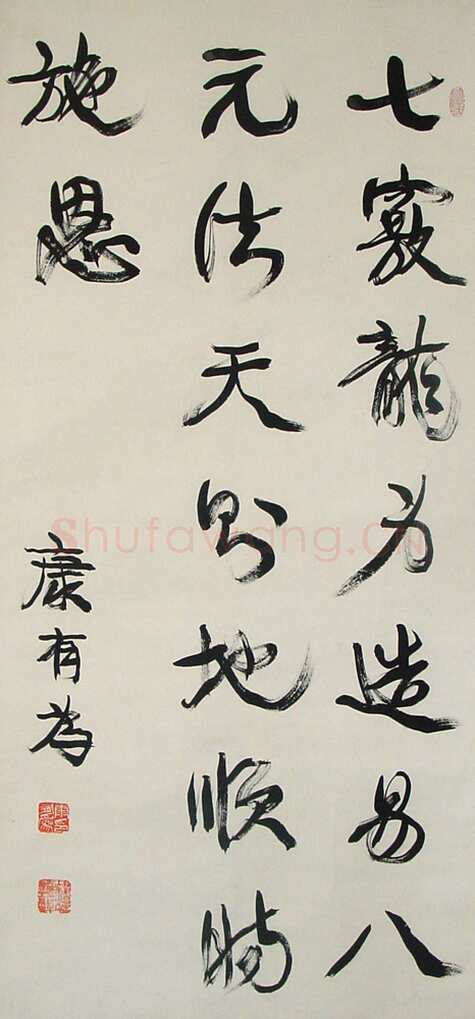 七竅龍為造易八
元法天則地順時
施恩
康有為
Shufawang.CN